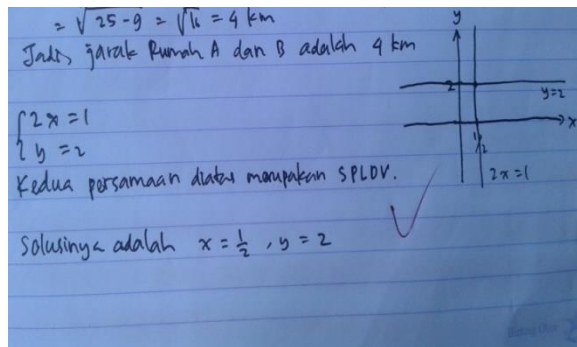 = √25-9 = √16 = 4 km
Jadi, jarak Rumah A dan B adalah 4 km
{2x = 1
y = 2
Kedua persamaan diatas merupakan SPLDV.
Solusinya adalah x = 1/2 , y = 2
y
2
y=2
x
1/2
2x=1